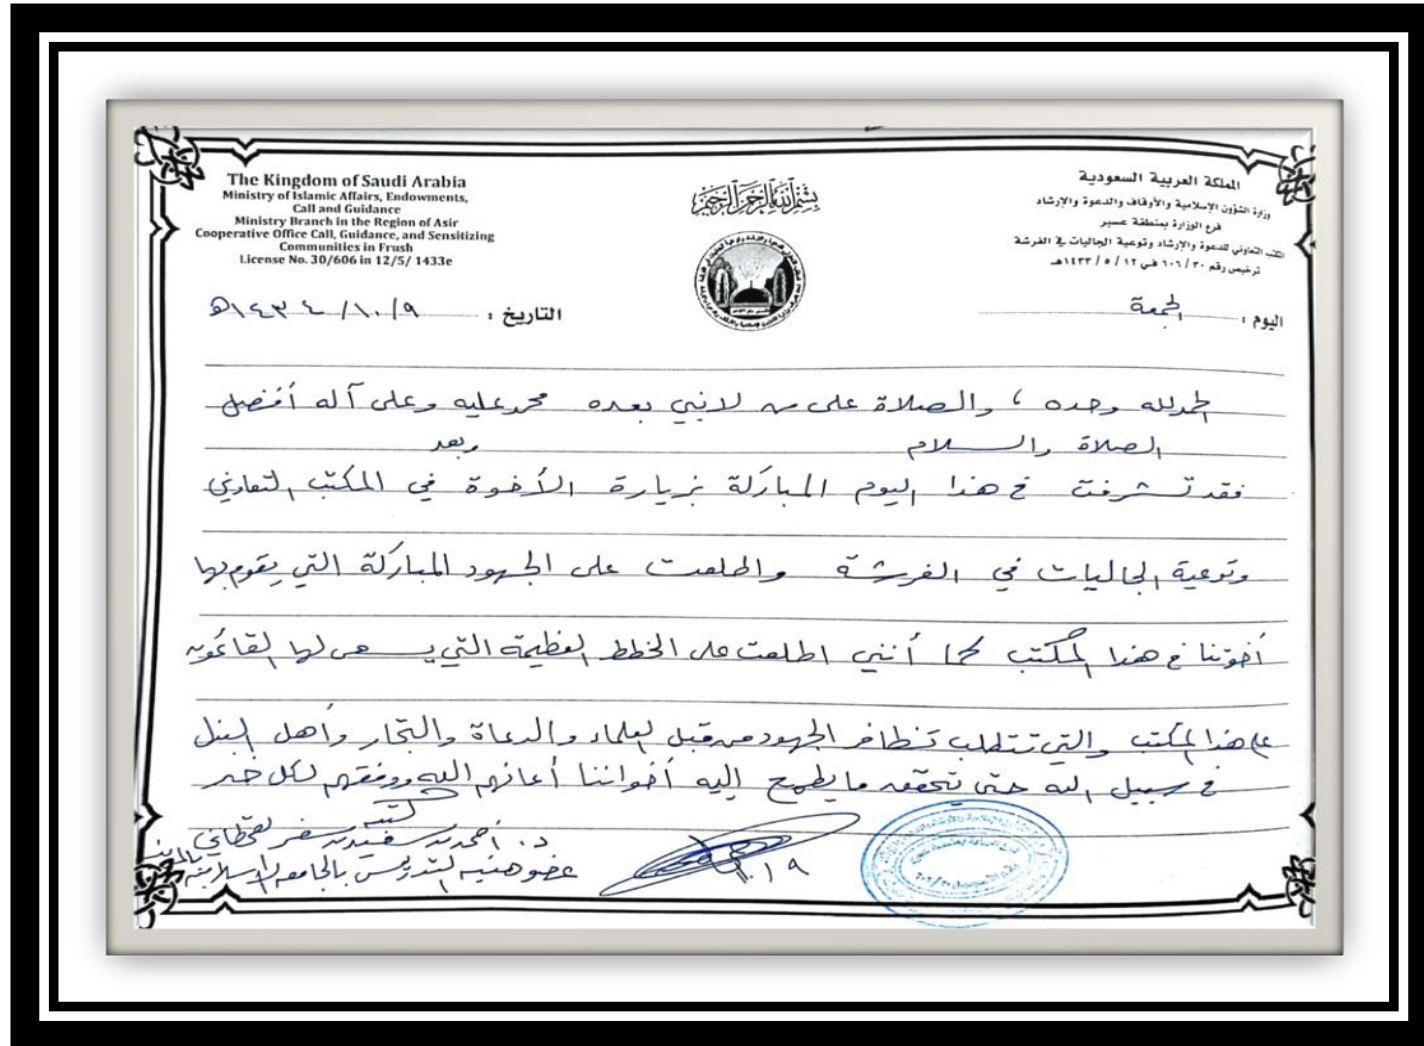 The Kingdom of Saudi Arabia
Ministry of Islamic Affairs, Endowments,
Call and Guidance
Ministry Branch in the Region of Asir
Cooperative Office Call, Guidance, and Sensitizing
Communities in Frush
License No. 30/606 in 12/5/ 1433e
بسم الله الرحمن الرحيم
المملكة العربية السعودية
وزارة الشؤون الإسلامية والأوقاف والدعوة والإرشاد
فرع الوزارة بمنطقة عسير
المكتب التعاوني للدعوة والإرشاد وتوعية الجاليات في الفرشة
ترخيص رقم ٦٠٦/٣٠ في ١٢ / ٥ / ١٤٣٣هـ
اليوم : الجمعة
التاريخ : ١٤٣٤/١٠/٩هـ
الحمد لله وحده ، والصلاة على من لا نبي بعده محمد عليه وعلى آله أفضل
الصلاة والسلام وبعد
فقد تشرفت في هذا اليوم المباركة بزيارة الأخوة في المكتب التعاوني
وتوعية الجاليات في الفرشة واطلعت على الجهود المباركة التي يقوم بها
أخوتنا في هذا المكتب كما أنني اطلعت على الخطط العظيمة التي يسعى لها القائمون
على هذا المكتب والتي تتطلب تظافر الجهود من قبل العلماء والدعاة والتجار وأهل البذل
في سبيل الله حتى تحقق ما يطمح إليه أخواننا أعانهم الله ووفقهم لكل خير
كتبه
د. أحمد بن سفر القحطاني
عضو هيئة التدريس بالجامعة الإسلامية